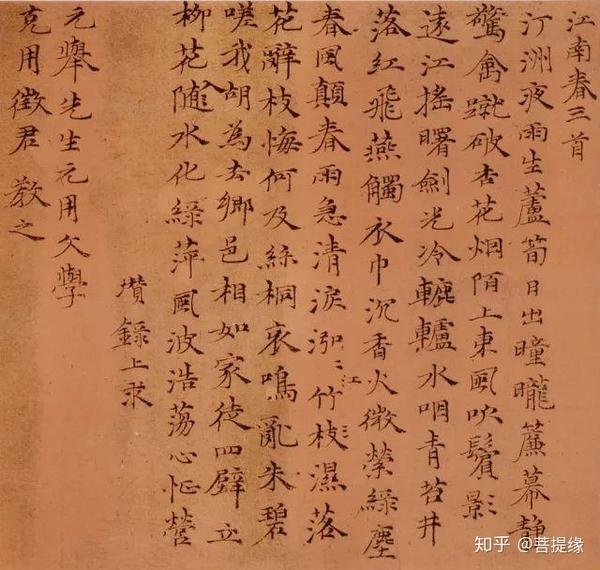 江南春三首
汀洲夜雨生蘆筍日出曈曨簾幕靜
驚禽蹴破杏花烟陌上東風吹鬢影
遠江搖曙劍光冷轆轤水咽青苔井
落紅飛燕觸衣巾沉香火微縈綠塵
春風顛春雨急清淚泓〻江竹枝濕落
花辭枝悔何及絲桐哀鳴亂朱碧
嗟我胡為去鄉邑相如家徒四壁立
柳花隨入水化綠萍風波浩蕩心怔營
瓚錄上求
元舉先生元用文學
克用徵君 教之
知乎 @菩提缘